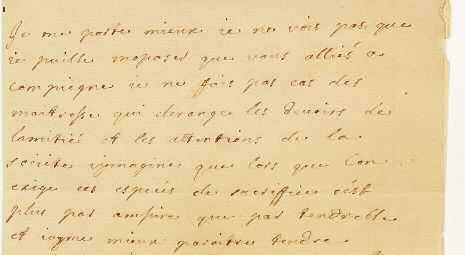 je me porte mieux je ne vois pas que
je puisse moposer que vous alliés a
compiegne je ne fais pas cas des
maitresse qui derange les devoirs de
lamitiés et les attentions de la
société jymagine que lors que lon
exige ces especes de sacriffice cést
plus par amour que par tendresse
et iayme mieux paraitre tendre